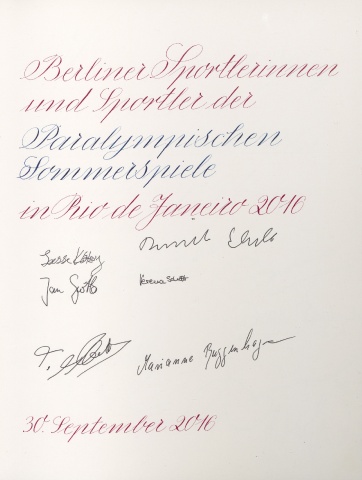 Berliner Sportlerinnen
und Sportler der
Paralympischen
Sommerspiele
in Rio de Janeiro 2016
Jan
Verena Schott
Marianne Buggenhagen
30. September 2016